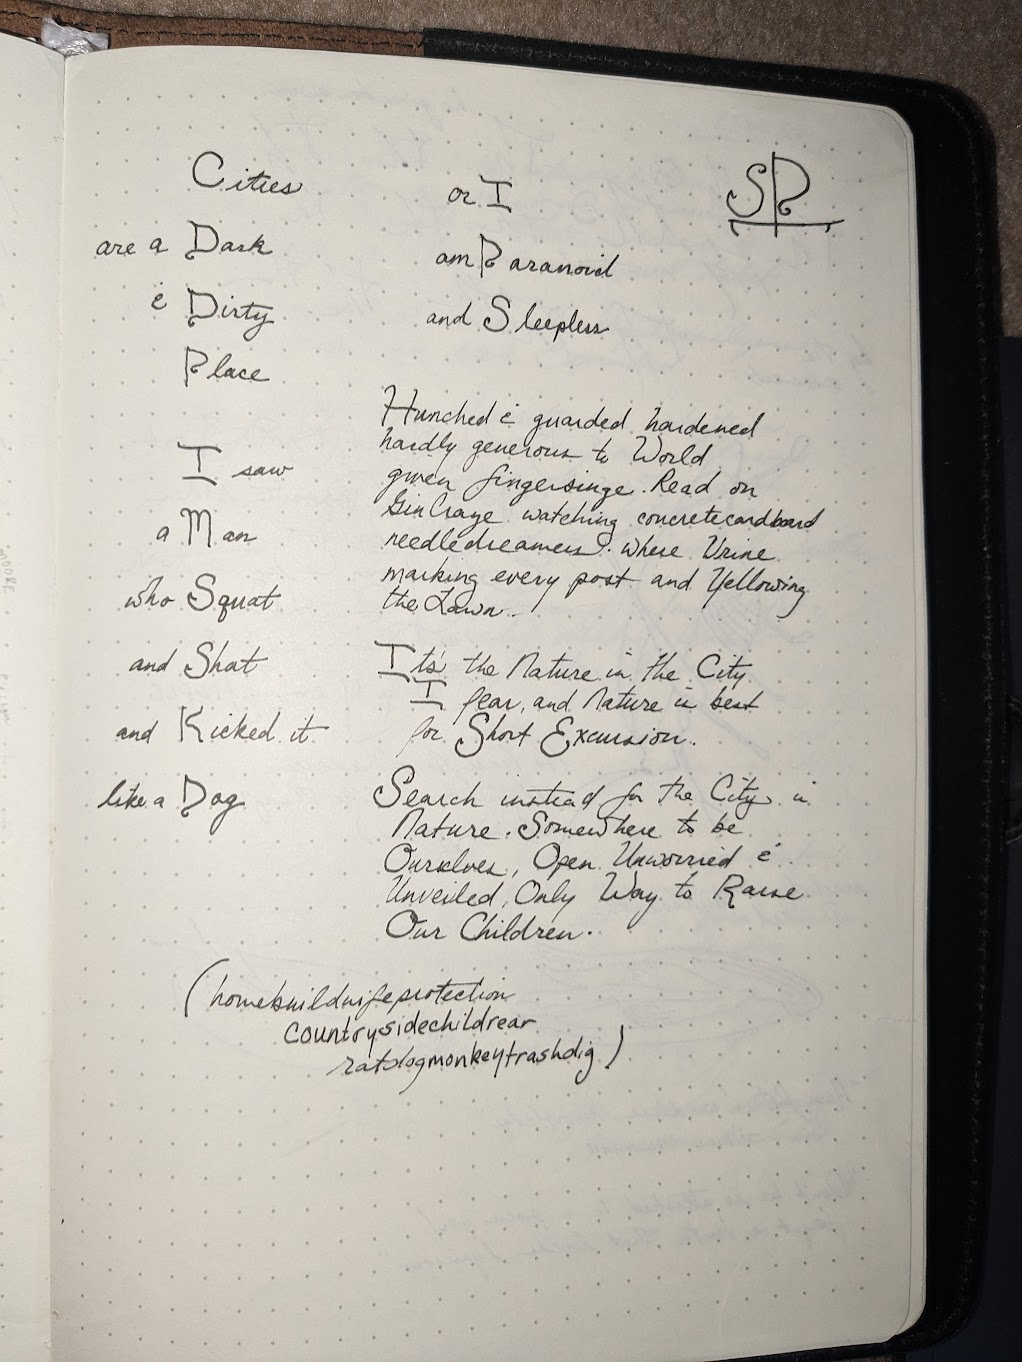 Cities
are a Dark
& Dirty
Place
I saw
a Man
who Squat
and Shat
and Kicked it
like a Dog
or I
am Paranoid
and Sleepless
SP
Hunched & guarded hardened
hardly generous to World
given fingersinge. Read on
GinCraze watching concretecardboard
needledreamers. where Urine
marking every post and Yellowing
the Lawn.
Its' the Nature in the City
I fear, and Nature is best
for Short Excursion.
Search instead for the City in
Nature. Somewhere to be
Ourselves, Open Unworried &
Unveiled, Only Way to Raise
Our Children.
(homebuildwifeprotection
countrysidechildrear
ratdogmonkeytrashdig)